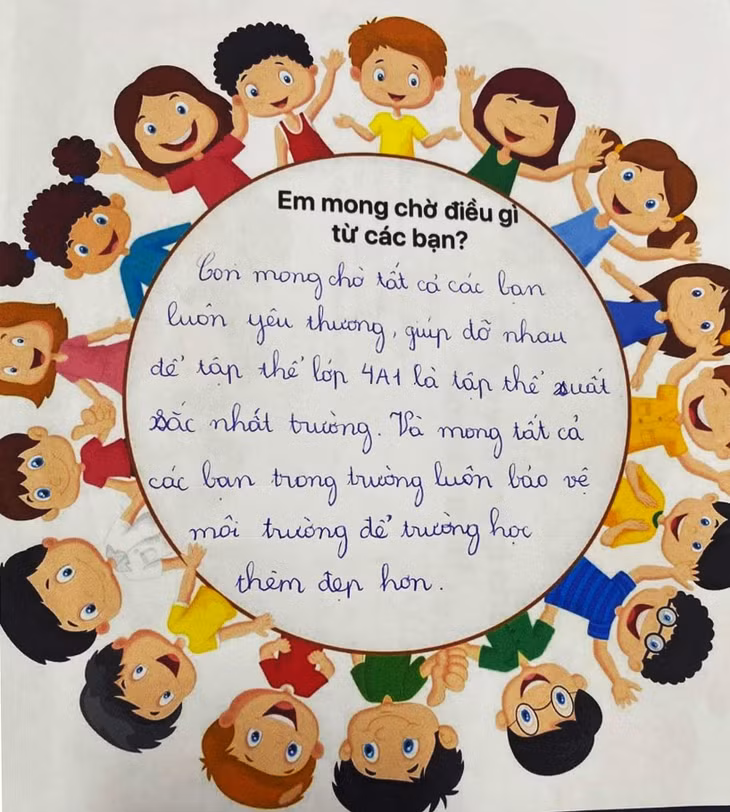 Em mong chờ điều gì
từ các bạn?
Con mong chờ tất cả các bạn
luôn yêu thương, giúp đỡ nhau
để tập thể lớp 4A1 là tập thể xuất
sắc nhất trường. Và mong tất cả
các bạn trong trường luôn bảo vệ
môi trường để trường học
thêm đẹp hơn.